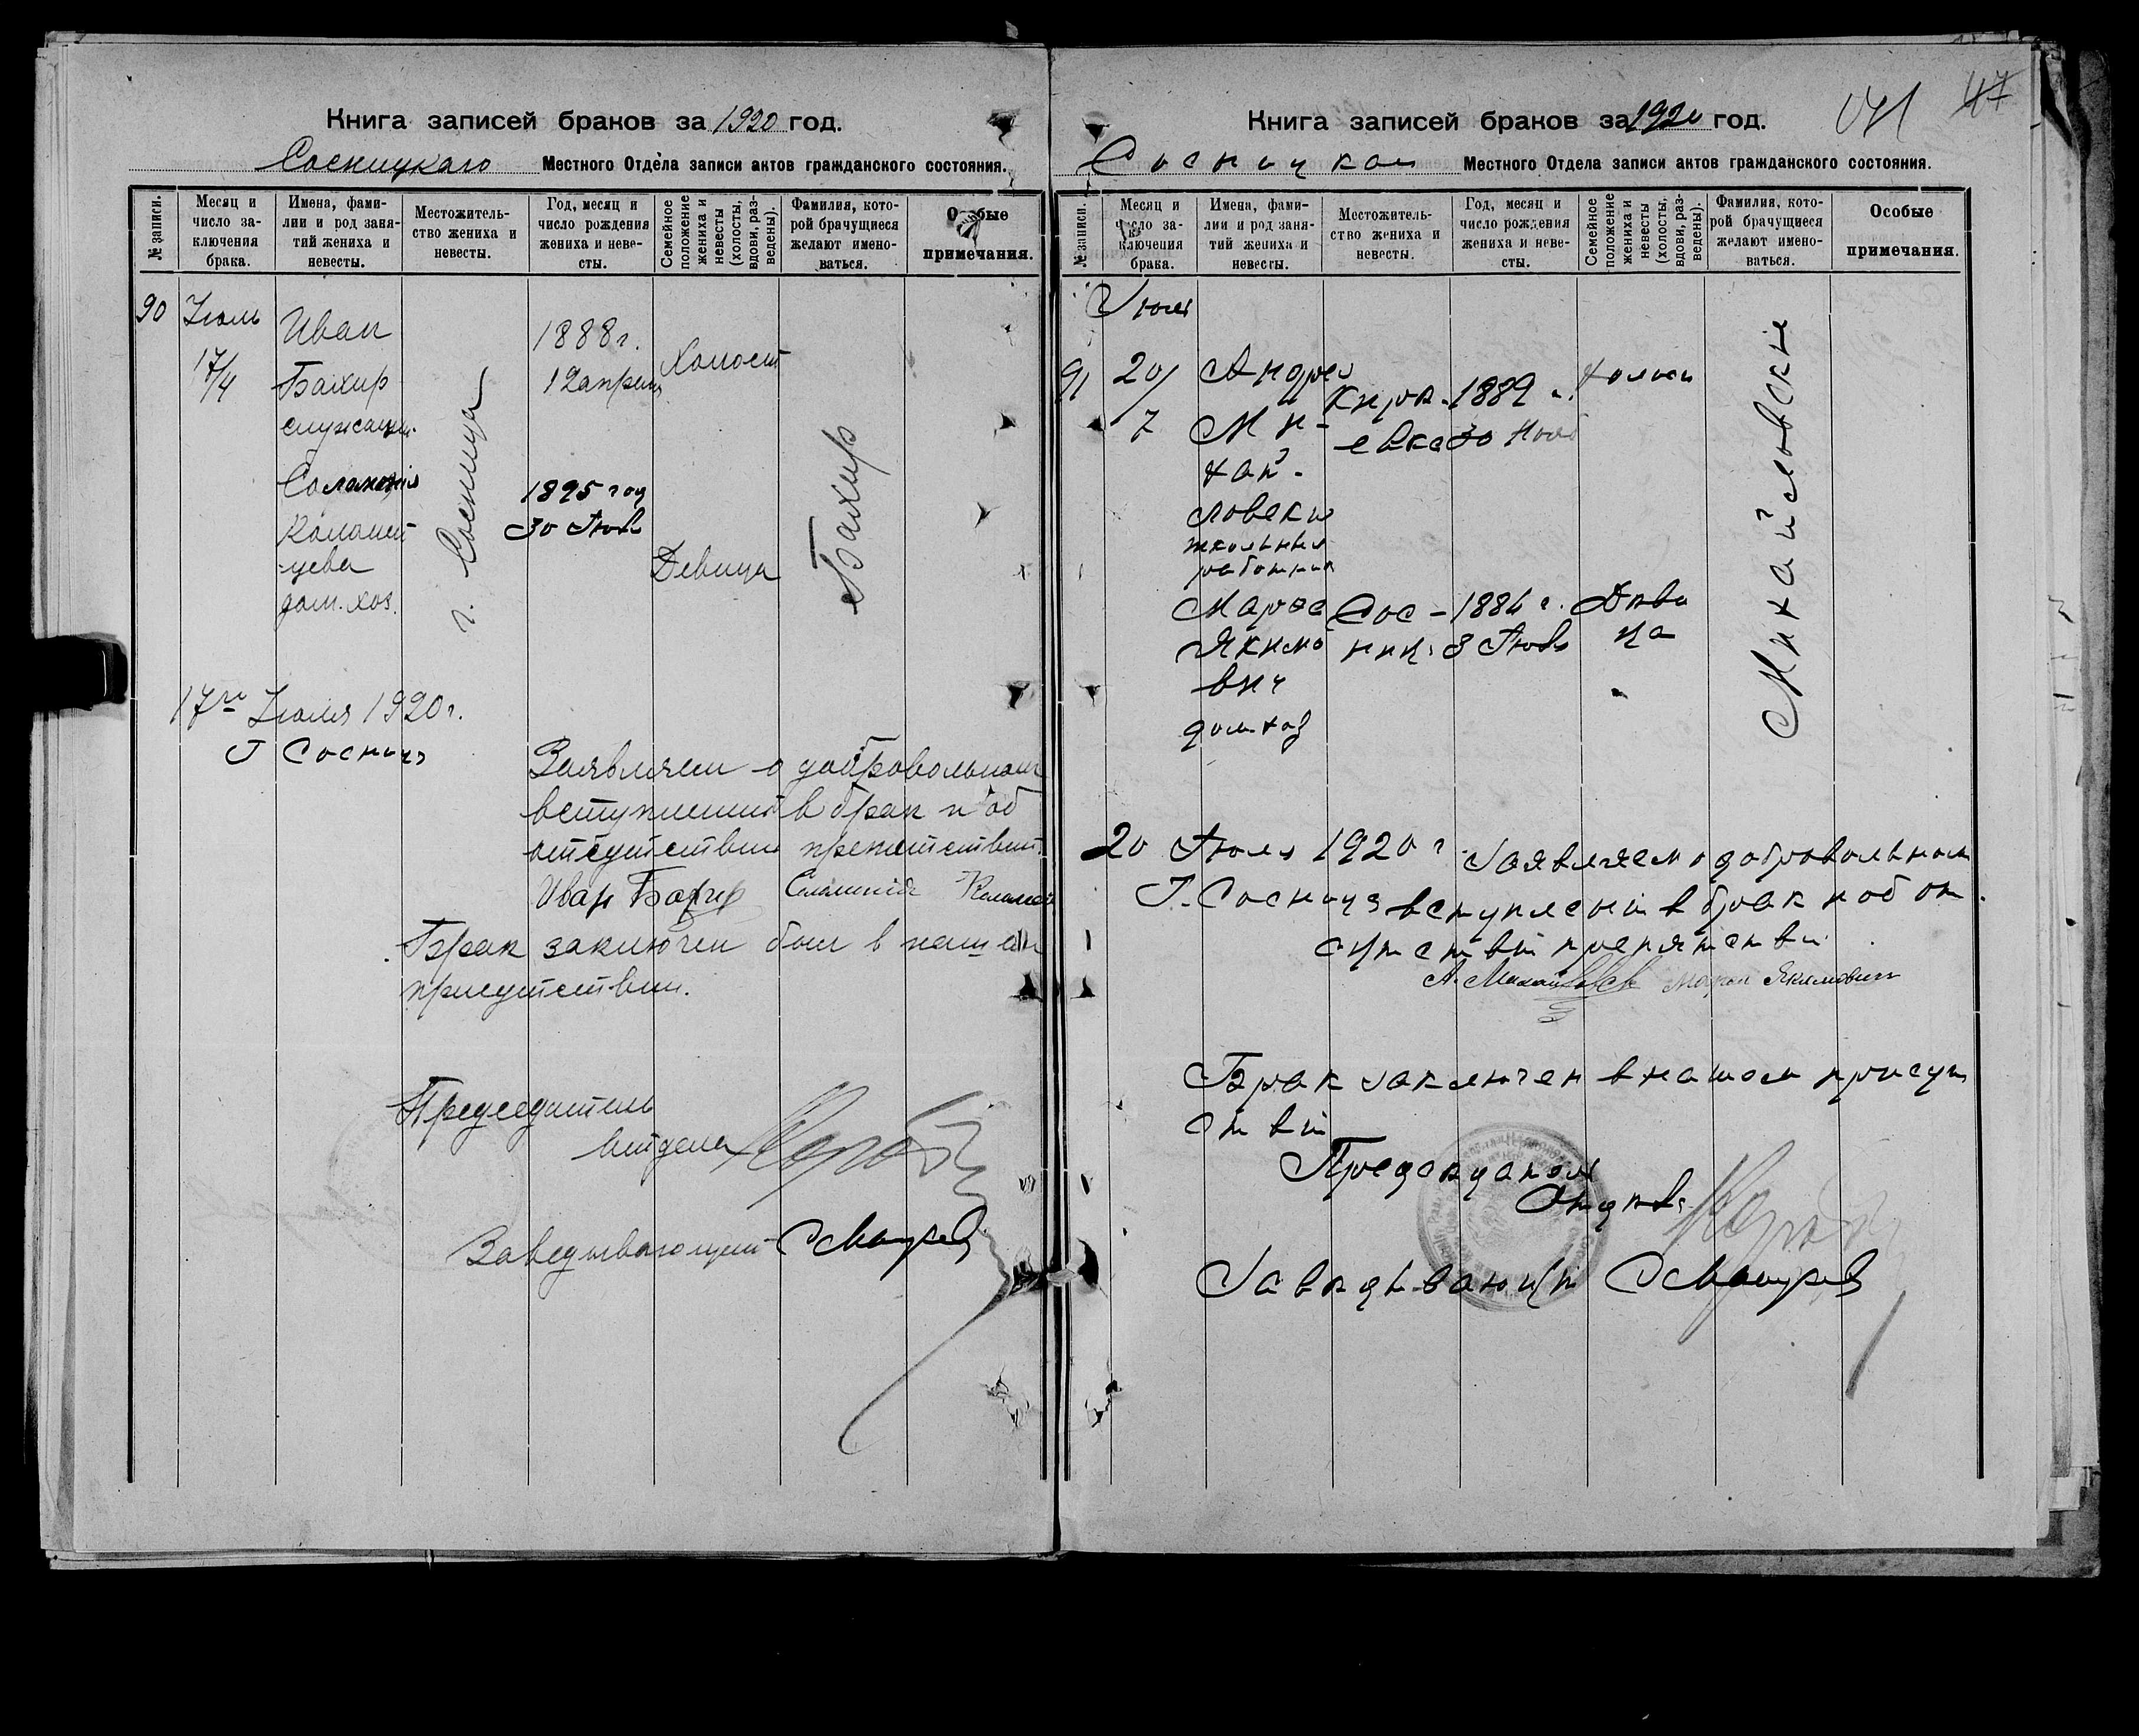 Книга записей браков за 1920 год.
Сосницкаго Местного Отдела записи актов гражданского состояния.
№ записи.
Месяц и число заключения брака.
Имена, фамилии и род занятий жениха и невесты.
Местожительство жениха и невесты.
Год, месяц и число рождения жениха и невесты.
Семейное положение жениха и невесты (холосты, вдовы, разведены).
Фамилия, которой брачущиеся желают именоваться.
Особые примечания.
90
Июль
17/4
Иван
Бахир
служащий
г. Сосница
1888 г.
12 апреля
Холост
Бахир
1895 год
30 Июль
Девица
дом. хоз.
17го Июля 1920 г.
Г Сосница
Заявляем о добровольном
вступлении в брак и об
отсутствии препятствий.
Иван Бахир
Брак заключен был в нашем
присутствии.
Председатель
отдела
Заведывающий
Книга записей браков за 1920 год.
47
Местного Отдела записи актов гражданского состояния.
№ записи.
Месяц и число заключения брака.
Имена, фамилии и род занятий жениха и невесты.
Местожительство жениха и невесты.
Год, месяц и число рождения жениха и невесты.
Семейное положение жениха и невесты (холосты, вдовы, разведены).
Фамилия, которой брачущиеся желают именоваться.
Особые примечания.
Июля
91
20/
7
Андрей
Ми-
хай-
ловски
школьный
работник
1889 г.
30 Нояб
Холост
Михайловские
Якимо
вич
дом хоз
Сос-
ниц.
8 Июль
Деви
ца
20 Июля 1920 г. Заявляем о добровольном
Г. Сосница вступлений в брак и об от
сутствий препятстви
Якимович
Брак заключен в нашем присут
ствий
Председатель
Отдела
Заведывающий